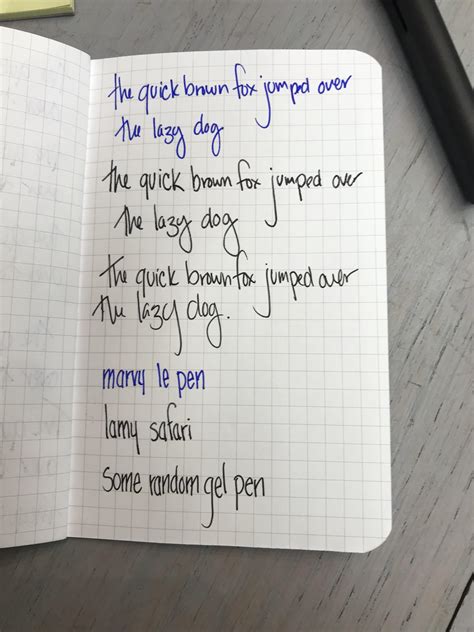 the quick brown fox jumped over
the lazy dog
the quick brown fox jumped over
the lazy dog
the quick brown fox jumped over
the lazy dog.
marvy le pen
lamy safari
some random gel pen